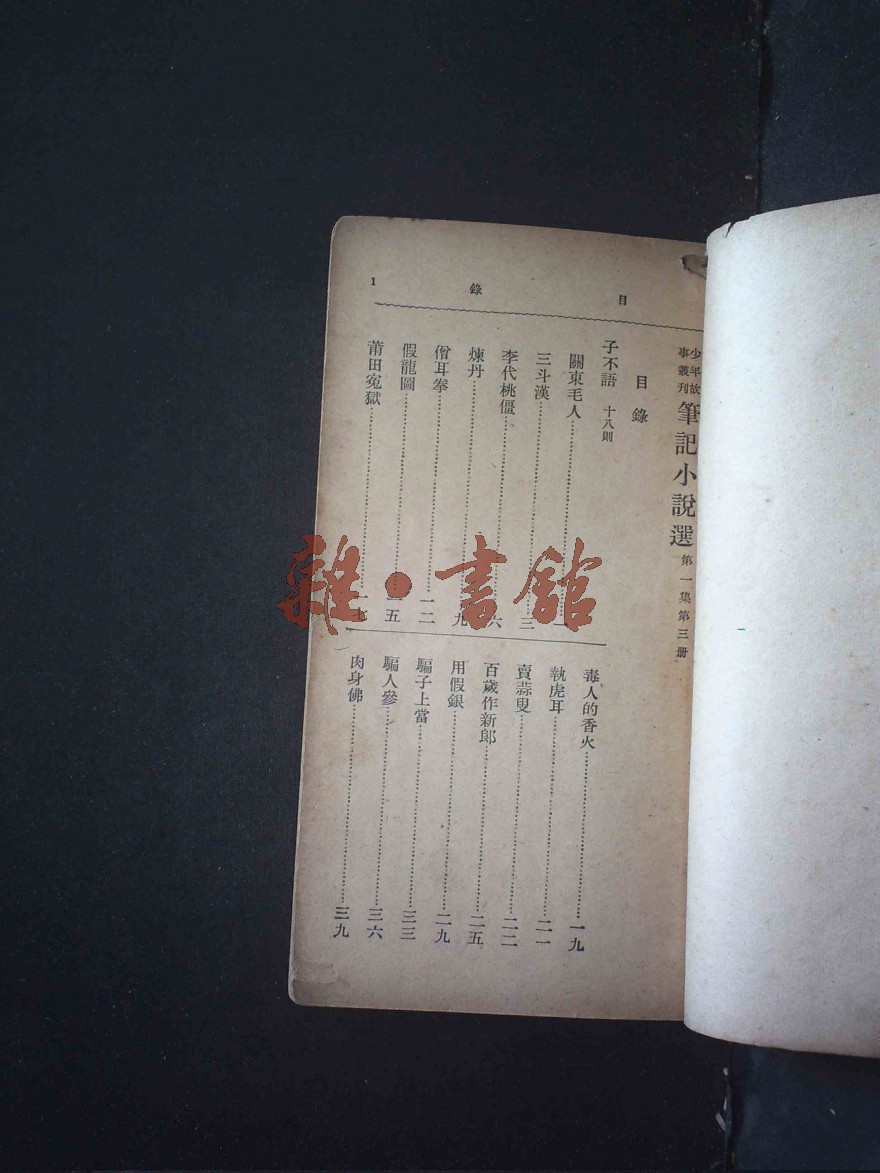 少年故事叢刊 筆記小說選 第一集第三册
目錄
子不語 十八則
關東毛人……一
三斗漢……三
李代桃僵……六
煉丹……九
僧耳拳……一二
假龍圖……一五
莆田冤獄……一七
毒人的香火……一九
執虎耳……二一
賣蒜叟……二二
百歲作新郎……二五
用假銀……二九
騙子上當……三三
騙人參……三六
肉身佛……三九
目錄 1
雜·書館